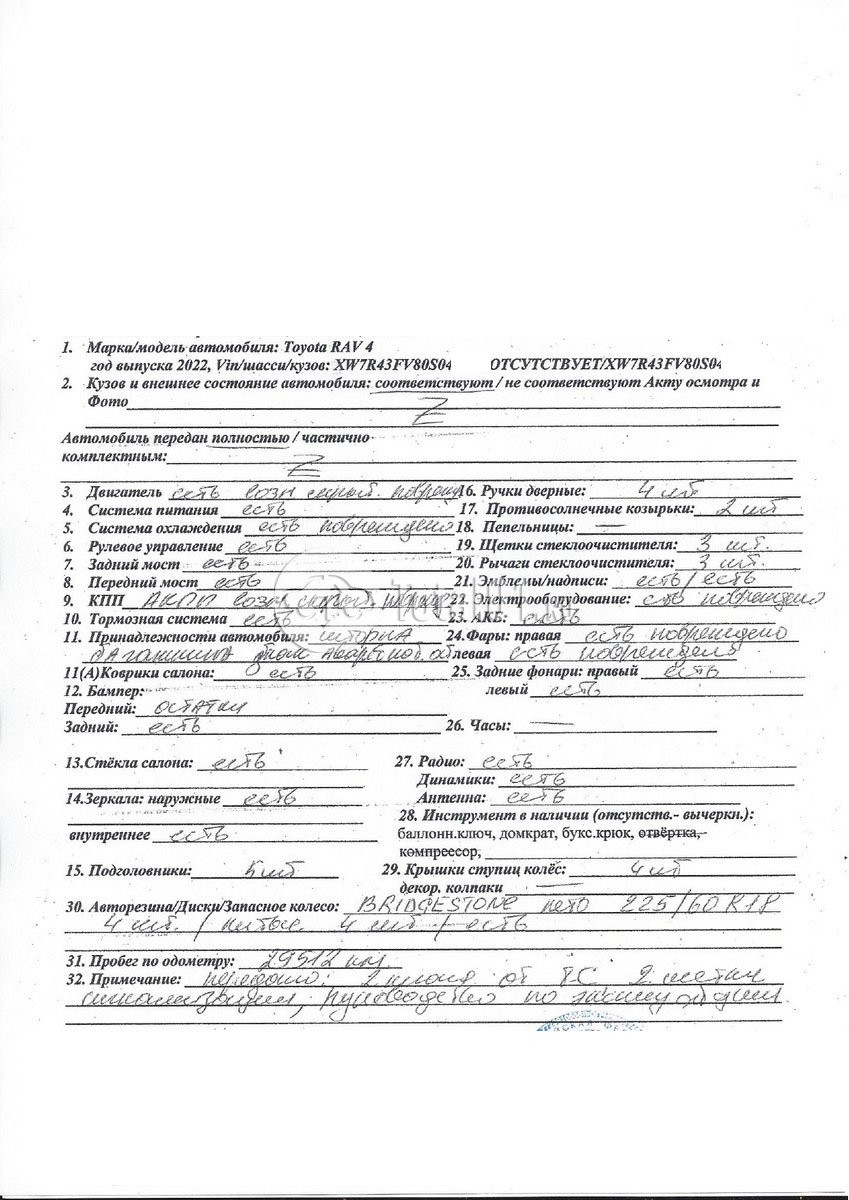 1. Марка/модель автомобиля: Toyota RAV 4
год выпуска 2022, Vin/шасси/кузов: XW7R43FV80S04 ОТСУТСТВУЕТ/XW7R43FV80S04
2. Кузов и внешнее состояние автомобиля: соответствуют / не соответствуют Акту осмотра и
Фото Z
Автомобиль передан полностью / частично
комплектным: Z
3. Двигатель есть возм скрыт. поврежд 16. Ручки дверные: 4 шт
4. Система питания есть 17. Противосолнечные козырьки: 2 шт
5. Система охлаждения есть повреждено 18. Пепельницы: —
6. Рулевое управление есть 19. Щетки стеклоочистителя: 3 шт.
7. Задний мост есть 20. Рычаги стеклоочистителя: 3 шт.
8. Передний мост есть 21. Эмблемы/надписи: есть / есть
9. КПП АКПП возм скрыт. 22. Электрооборудование: повреждено
10. Тормозная система есть 23. АКБ: есть
11. Принадлежности автомобиля: шторка 24. Фары: правая есть повреждено
багажника левая есть повреждена
11(А)Коврики салона: есть 25. Задние фонари: правый есть
12. Бампер: левый есть
Передний: остатки
Задний: есть 26. Часы: —
13.Стёкла салона: есть 27. Радио: есть
Динамики: есть
14.Зеркала: наружные есть Антенна: есть
28. Инструмент в наличии (отсутств.- вычеркн.):
внутреннее есть баллонн.ключ, домкрат, букс.крюк, отвёртка,
компрессор,
15. Подголовники: 5 шт 29. Крышки ступиц колёс: 4 шт
декор. колпаки —
30. Авторезина/Диски/Запасное колесо: BRIDGESTONE лето 225/60 R18
4 шт. / литые 4 шт / есть
31. Пробег по одометру: 29512 км
32. Примечание: передано: 2 ключа от ТС 2 метки
сигнализации, руководство по